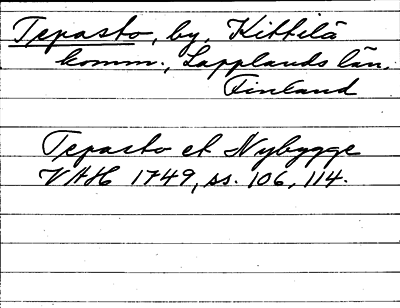 Tepasto, by, Kittilä
komm., Lapplands län,
Finland
Tepasto et Nybygge
VAH 1749, ss. 106, 114.